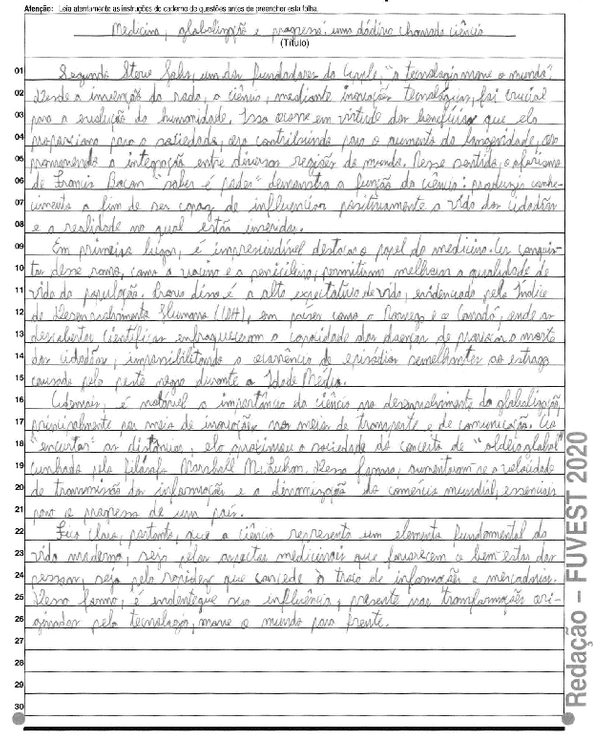 Atenção: Leia atentamente as instruções do caderno de questões antes de preencher esta folha.
Medicina, globalização e progresso: uma dádiva chamada ciência
(Título)
01 Segundo Steve Jobs, um dos fundadores da Apple, "a tecnologia move o mundo".
02 Desde a invenção da roda, a ciência, mediante inovações tecnológicas, foi crucial
03 para a evolução da humanidade. Isso ocorre em virtude dos benefícios que ela
04 proporciona para a sociedade, ora contribuindo para o aumento da longevidade, ora
05 promovendo a integração entre diversas regiões do mundo. Nesse sentido, o aforismo
06 de Francis Bacon "saber é poder" demonstra a função da ciência: produzir conhe-
07 cimento a fim de ser capaz de influenciar positivamente a vida dos cidadãos
08 e a realidade na qual estão inseridos.
09 Em primeiro lugar, é imprescindível destacar o papel da medicina. As conquis-
10 tas desse ramo, como a vacina e a penicilina, permitiram melhorar a qualidade de
11 vida da população. Prova disso é a alta expectativa de vida, evidenciada pelo Índice
12 de Desenvolvimento Humano (IDH), em países como a Noruega e o Canadá, onde as
13 descobertas científicas enfraqueceram a capacidade das doenças de provocar a morte
14 dos cidadãos, impossibilitando a ocorrência de episódios semelhantes ao estrago
15 causado pela peste negra durante a Idade Média.
16 Ademais, é notável a importância da ciência no desenvolvimento da globalização,
17 principalmente por meio de inovações nos meios de transporte e de comunicação. Ao
18 "encurtar" as distâncias, ela aproximou a sociedade do conceito de "aldeia global"
19 cunhado pelo filósofo Marshall McLuhan. Dessa forma, aumentaram-se a velocidade
20 de transmissão das informações e a dinamização do comércio mundial, essenciais
21 para o progresso de um país.
22 Fica claro, portanto, que a ciência representa um elemento fundamental da
23 vida moderna, seja pelos aspectos medicinais que favorecem o bem-estar das
24 pessoas, seja pela rapidez que concede à troca de informações e mercadorias.
25 Dessa forma, é evidente que sua influência, presente nas transformações ori-
26 ginadas pela tecnologia, move o mundo para frente.
27
28
29
30
Redação – FUVEST 2020